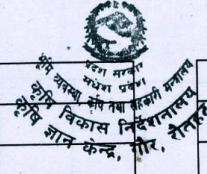 प्रदेश सरकार
मधेश प्रदेश
भूमि व्यवस्था कृषि तथा सहकारी मन्त्रालय
कृषि विकास निर्देशनालय
कृषि ज्ञान केन्द्र, गौर, रौतहट